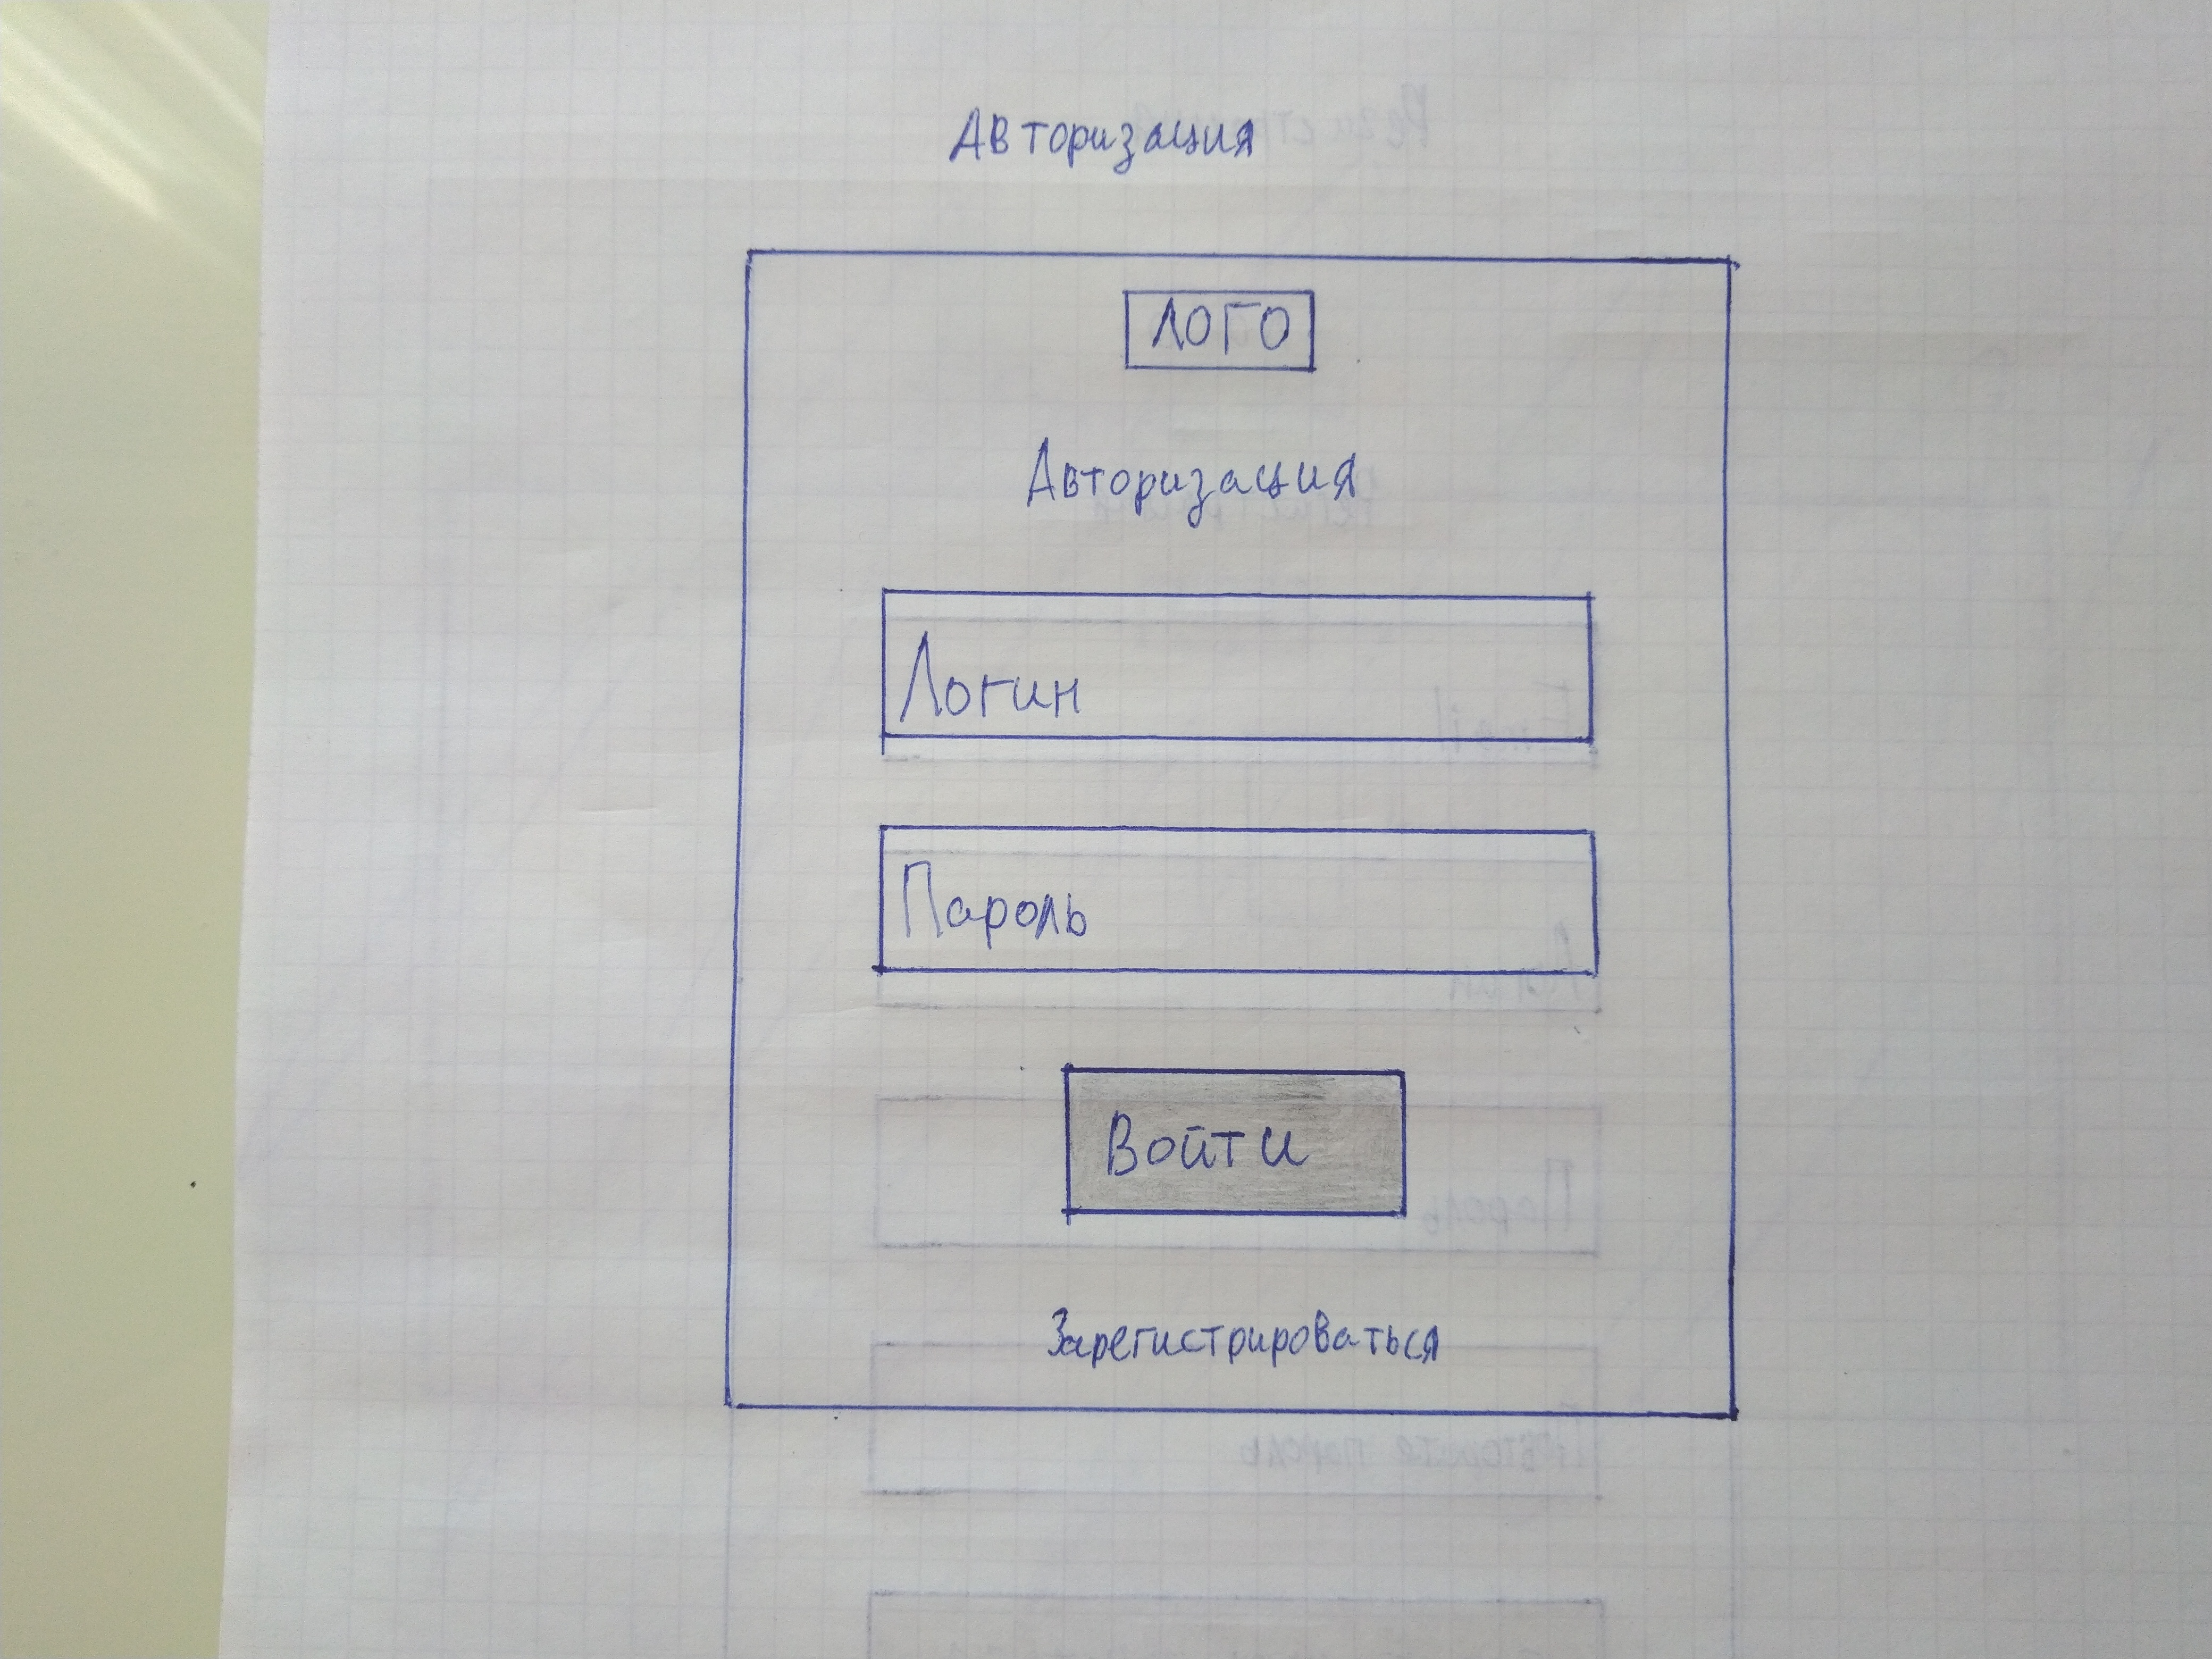 Авторизация
ЛОГО
Авторизация
Логин
Пароль
Войти
Зарегистрироваться